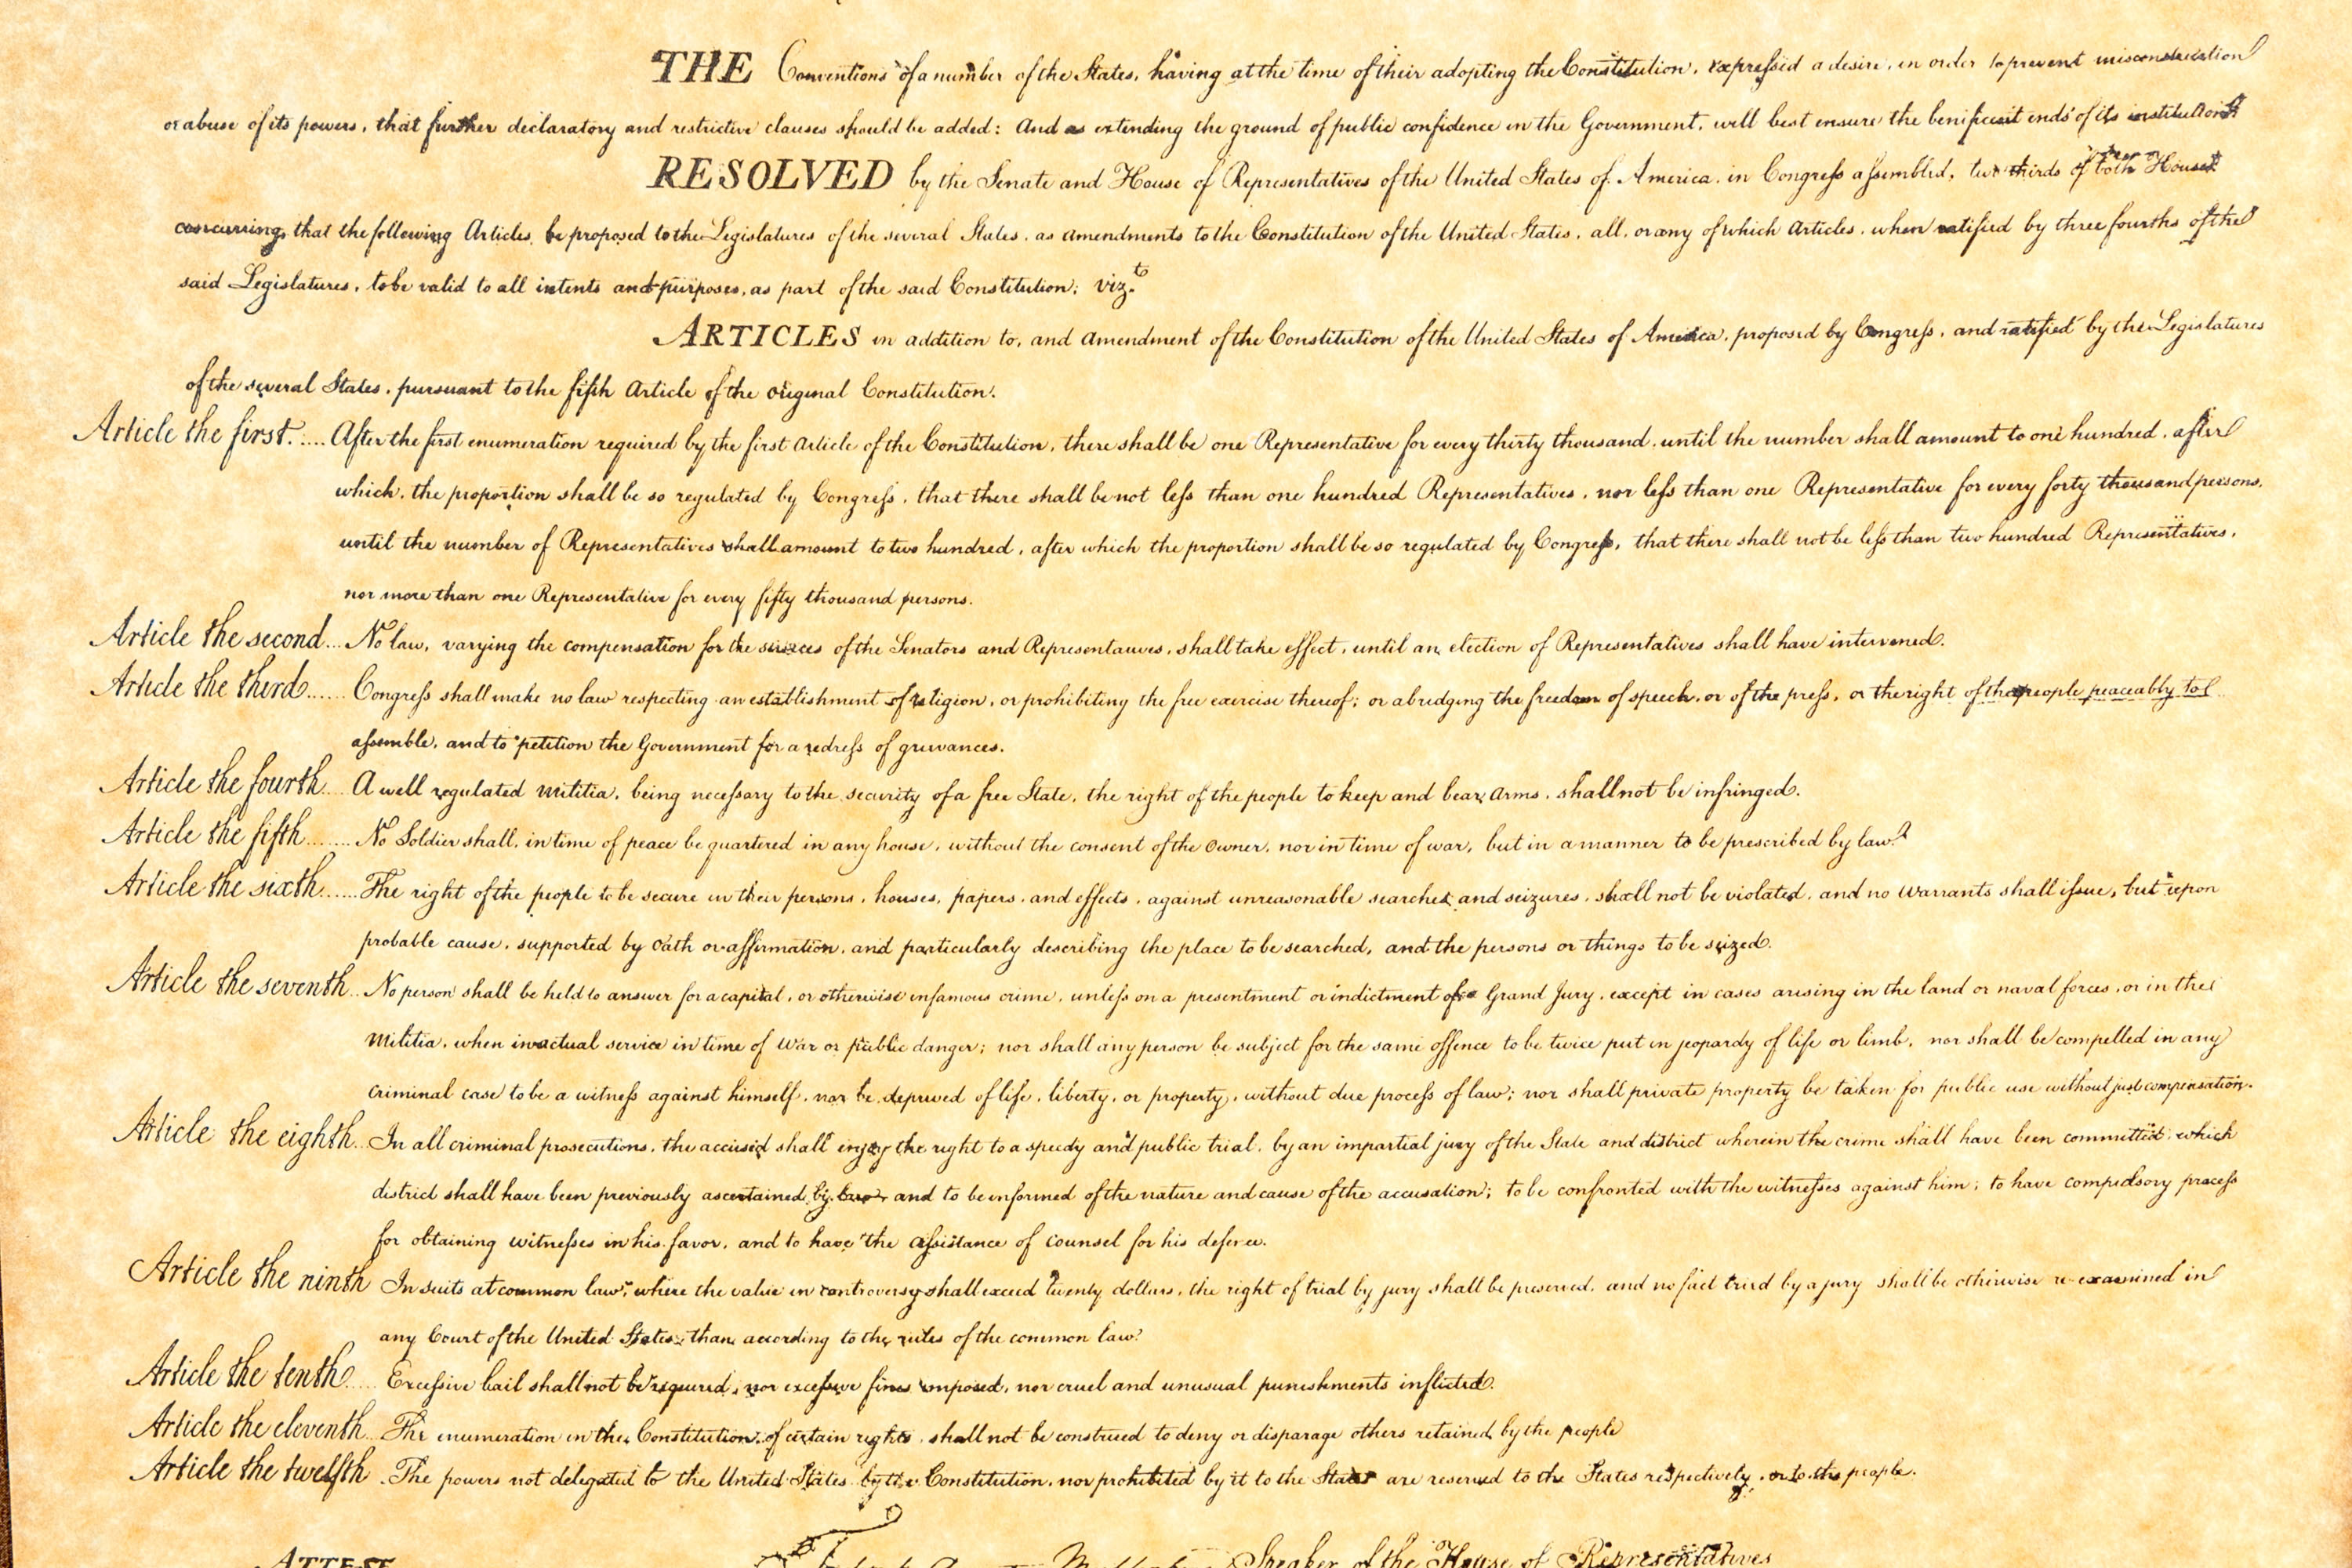 THE Conventions of a number of the States, having at the time of their adopting the Constitution, expressed a desire, in order to prevent misconstruction
or abuse of its powers, that further declaratory and restrictive clauses should be added: And as extending the ground of public confidence in the Government, will best ensure the benificent ends of its institution
RESOLVED by the Senate and House of Representatives of the United States of America, in Congress assembled, two thirds of both Houses
concurring, that the following Articles be proposed to the Legislatures of the several States, as Amendments to the Constitution of the United States, all, or any of which Articles, when ratified by three fourths of the
said Legislatures, to be valid to all intents and purposes, as part of the said Constitution; viz.t
ARTICLES in addition to, and Amendment of the Constitution of the United States of America, proposed by Congress, and ratified by the Legislatures
of the several States, pursuant to the fifth Article of the original Constitution.
Article the first..... After the first enumeration required by the first Article of the Constitution, there shall be one Representative for every thirty thousand, until the number shall amount to one hundred, after
which, the proportion shall be so regulated by Congress, that there shall be not less than one hundred Representatives, nor less than one Representative for every forty thousand persons,
until the number of Representatives shall amount to two hundred, after which the proportion shall be so regulated by Congress, that there shall not be less than two hundred Representatives,
nor more than one Representative for every fifty thousand persons.
Article the second... No law, varying the compensation for the services of the Senators and Representatives, shall take effect, until an election of Representatives shall have intervened.
Article the third...... Congress shall make no law respecting an establishment of religion, or prohibiting the free exercise thereof; or abridging the freedom of speech, or of the press, or the right of the people peaceably to
assemble, and to petition the Government for a redress of grievances.
Article the fourth.... A well regulated Militia, being necessary to the security of a free State, the right of the people to keep and bear Arms, shall not be infringed.
Article the fifth....... No Soldier shall, in time of peace be quartered in any house, without the consent of the Owner, nor in time of war, but in a manner to be prescribed by law.
Article the sixth...... The right of the people to be secure in their persons, houses, papers, and effects, against unreasonable searches and seizures, shall not be violated, and no Warrants shall issue, but upon
probable cause, supported by Oath or affirmation, and particularly describing the place to be searched, and the persons or things to be seized.
Article the seventh.. No person shall be held to answer for a capital, or otherwise infamous crime, unless on a presentment or indictment of a Grand Jury, except in cases arising in the land or naval forces, or in the
Militia, when in actual service in time of War or public danger; nor shall any person be subject for the same offence to be twice put in jeopardy of life or limb, nor shall be compelled in any
criminal case to be a witness against himself, nor be deprived of life, liberty, or property, without due process of law; nor shall private property be taken for public use without just compensation.
Article the eighth.. In all criminal prosecutions, the accused shall enjoy the right to a speedy and public trial, by an impartial jury of the State and district wherein the crime shall have been committed, which
district shall have been previously ascertained by law, and to be informed of the nature and cause of the accusation; to be confronted with the witnesses against him; to have compulsory process
for obtaining witnesses in his favor, and to have the assistance of counsel for his defence.
Article the ninth In suits at common law, where the value in controversy shall exceed twenty dollars, the right of trial by jury shall be preserved, and no fact tried by a jury shall be otherwise re-examined in
any Court of the United States, than according to the rules of the common law.
Article the tenth..... Excessive bail shall not be required, nor excessive fines imposed, nor cruel and unusual punishments inflicted.
Article the eleventh.. The enumeration in the Constitution, of certain rights, shall not be construed to deny or disparage others retained by the people
Article the twelfth The powers not delegated to the United States by the Constitution, nor prohibited by it to the States are reserved to the States respectively, or to the people.
ATTEST Speaker of the House of Representatives